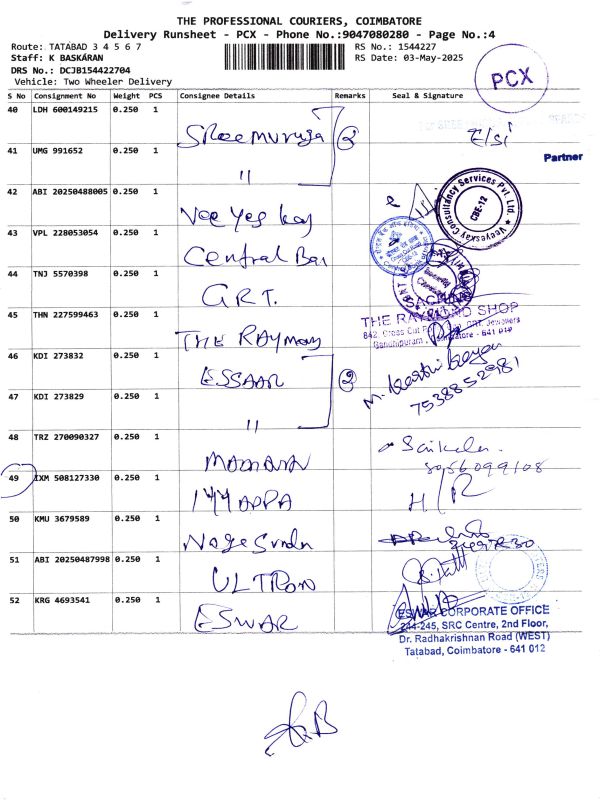 THE PROFESSIONAL COURIERS, COIMBATORE
Delivery Runsheet - PCX - Phone No.:9047080280 - Page No.:4
Route: TATABAD 3 4 5 6 7
Staff: K BASKARAN
DRS No.: DCJB154422704
Vehicle: Two Wheeler Delivery
RS No.: 1544227
RS Date: 03-May-2025
PCX
S No Consignment No Weight PCS Consignee Details Remarks Seal & Signature
40 LDH 600149215 0.250 1 Sree muruga 2
Partner
41 UMG 991652 0.250 1 "
42 ABI 20250488005 0.250 1 Vee Yes Kay
Veeyeskay Consultancy Services Pvt. Ltd. CBE-12
43 VPL 228053054 0.250 1 Central Ban
44 TNJ 5570398 0.250 1 G.R.T.
45 THN 227599463 0.250 1 THE RAYmond
THE RAYMOND SHOP
842, Cross Cut
Gandhipuram, Coimbatore - 641 012
46 KDI 273832 0.250 1 ESSAAR 2
7538852981
47 KDI 273829 0.250 1 "
48 TRZ 270090327 0.250 1
8056099108
49 IXM 508127330 0.250 1 H/R
50 KMU 3679589 0.250 1
51 ABI 20250487998 0.250 1 ULTRON
52 KRG 4693541 0.250 1 ESWAR
ESWAR CORPORATE OFFICE
244-245, SRC Centre, 2nd Floor,
Dr. Radhakrishnan Road (WEST)
Tatabad, Coimbatore - 641 012